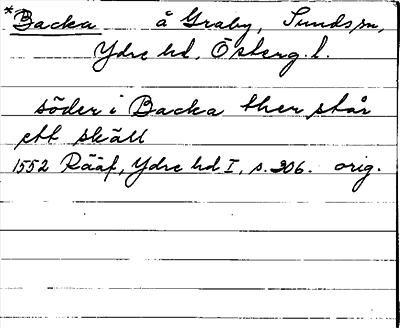 *Backa å Graby, Sunds sn,
Ydre hd, Österg. l.
söder i Backa ther står
ett skäll
1552 Rääf, Ydre hd I, s. 206. orig.